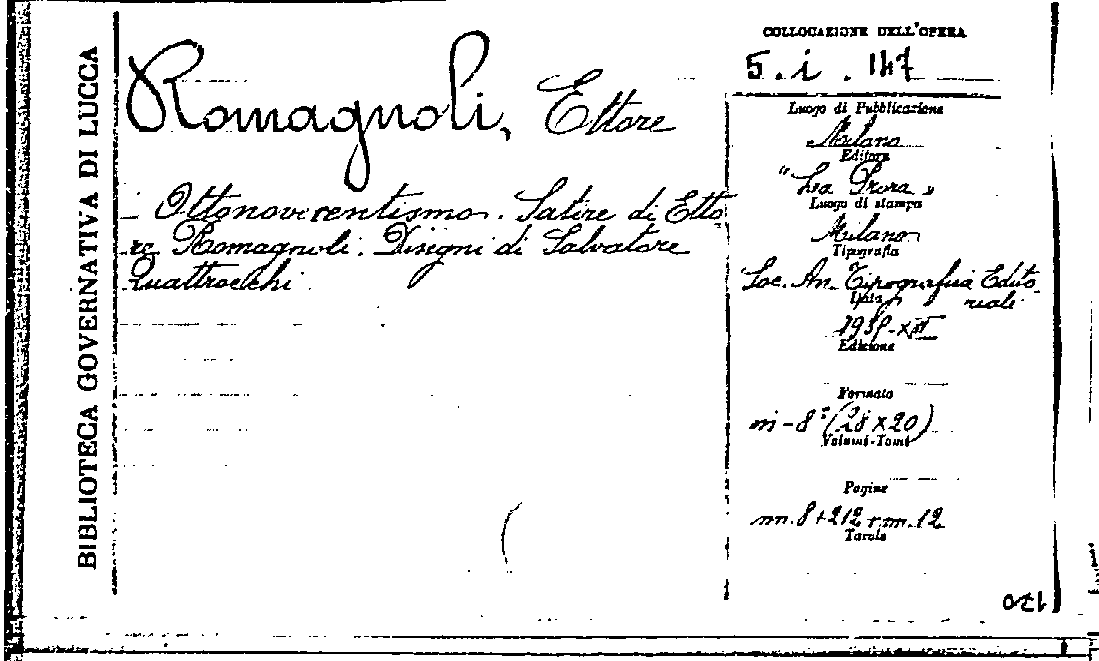 BIBLIOTECA GOVERNATIVA DI LUCCA
Romagnoli, Ettore
Ottonovecentismo. Satire di Etto
re Romagnoli. Disegni di Salvatore
Quattrocchi
COLLOCAZIONE DELL'OPERA
5. i. 147
Luogo di Pubblicazione
Milano
Editore
"La Prora"
Luogo di stampa
Milano
Tipografia
Soc. An. Tipografia Edito
riali
Data
Edizione
Formato
in-8° (28 x 20)
Volumi-Tomi
Pagine
nn. 8+212 nn. 12
Tavole
170